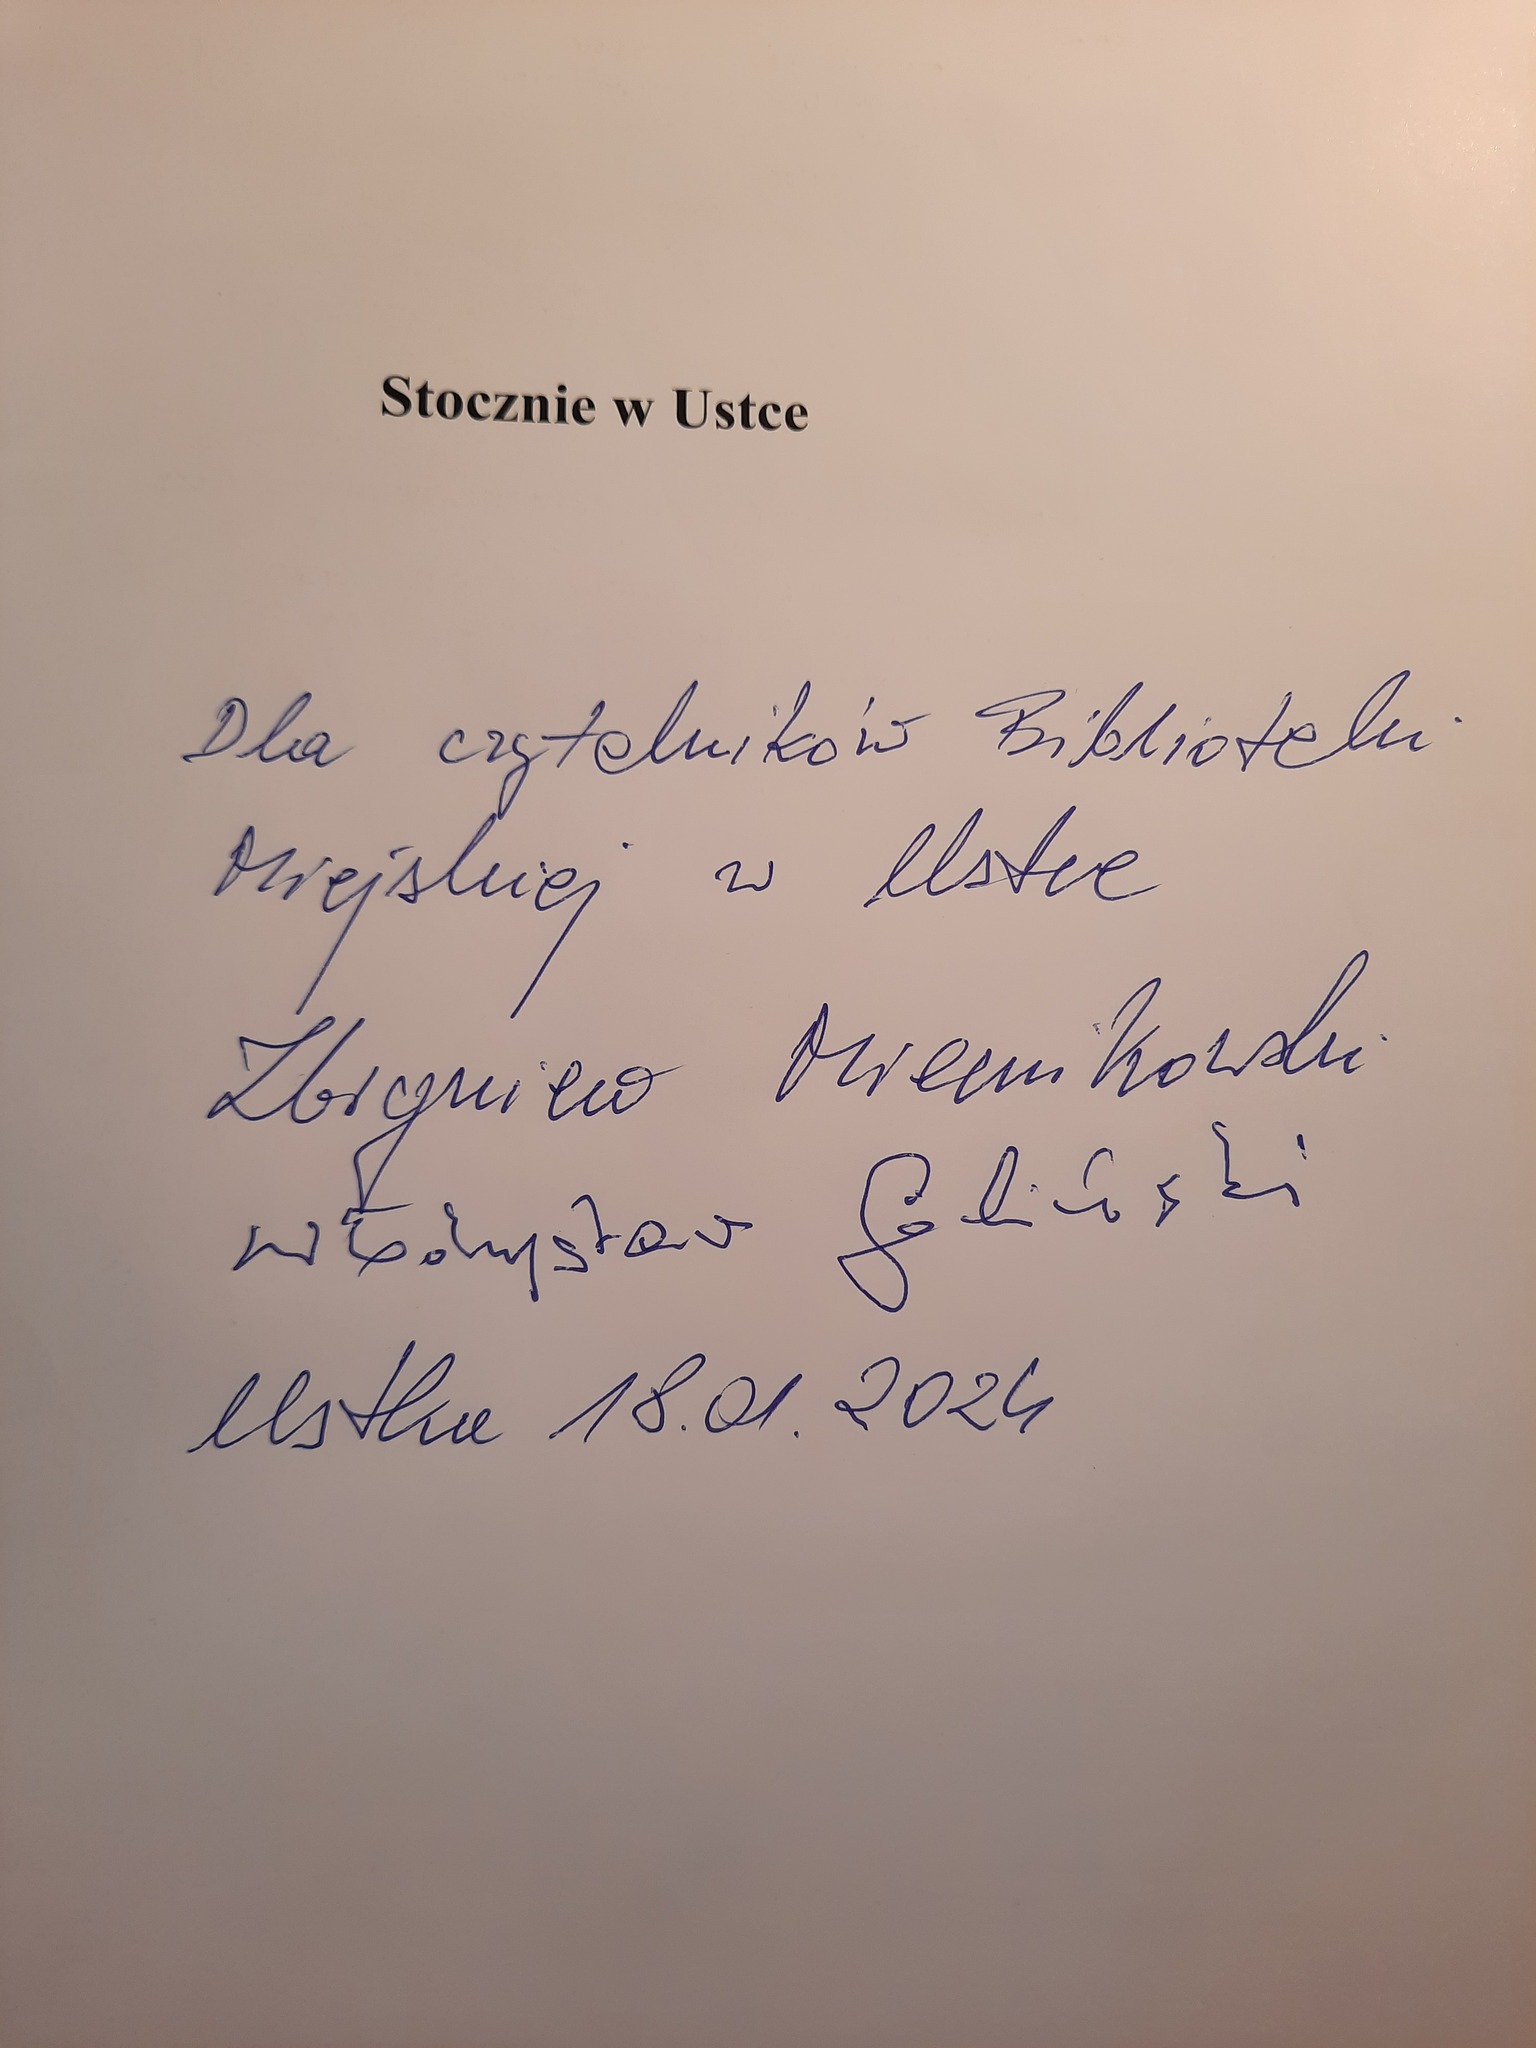 Stocznie w Ustce
Dla czytelników Biblioteki
Miejskiej w Ustce
Zbigniew Miecznikowski
Władysław
Ustka 18.01.2024